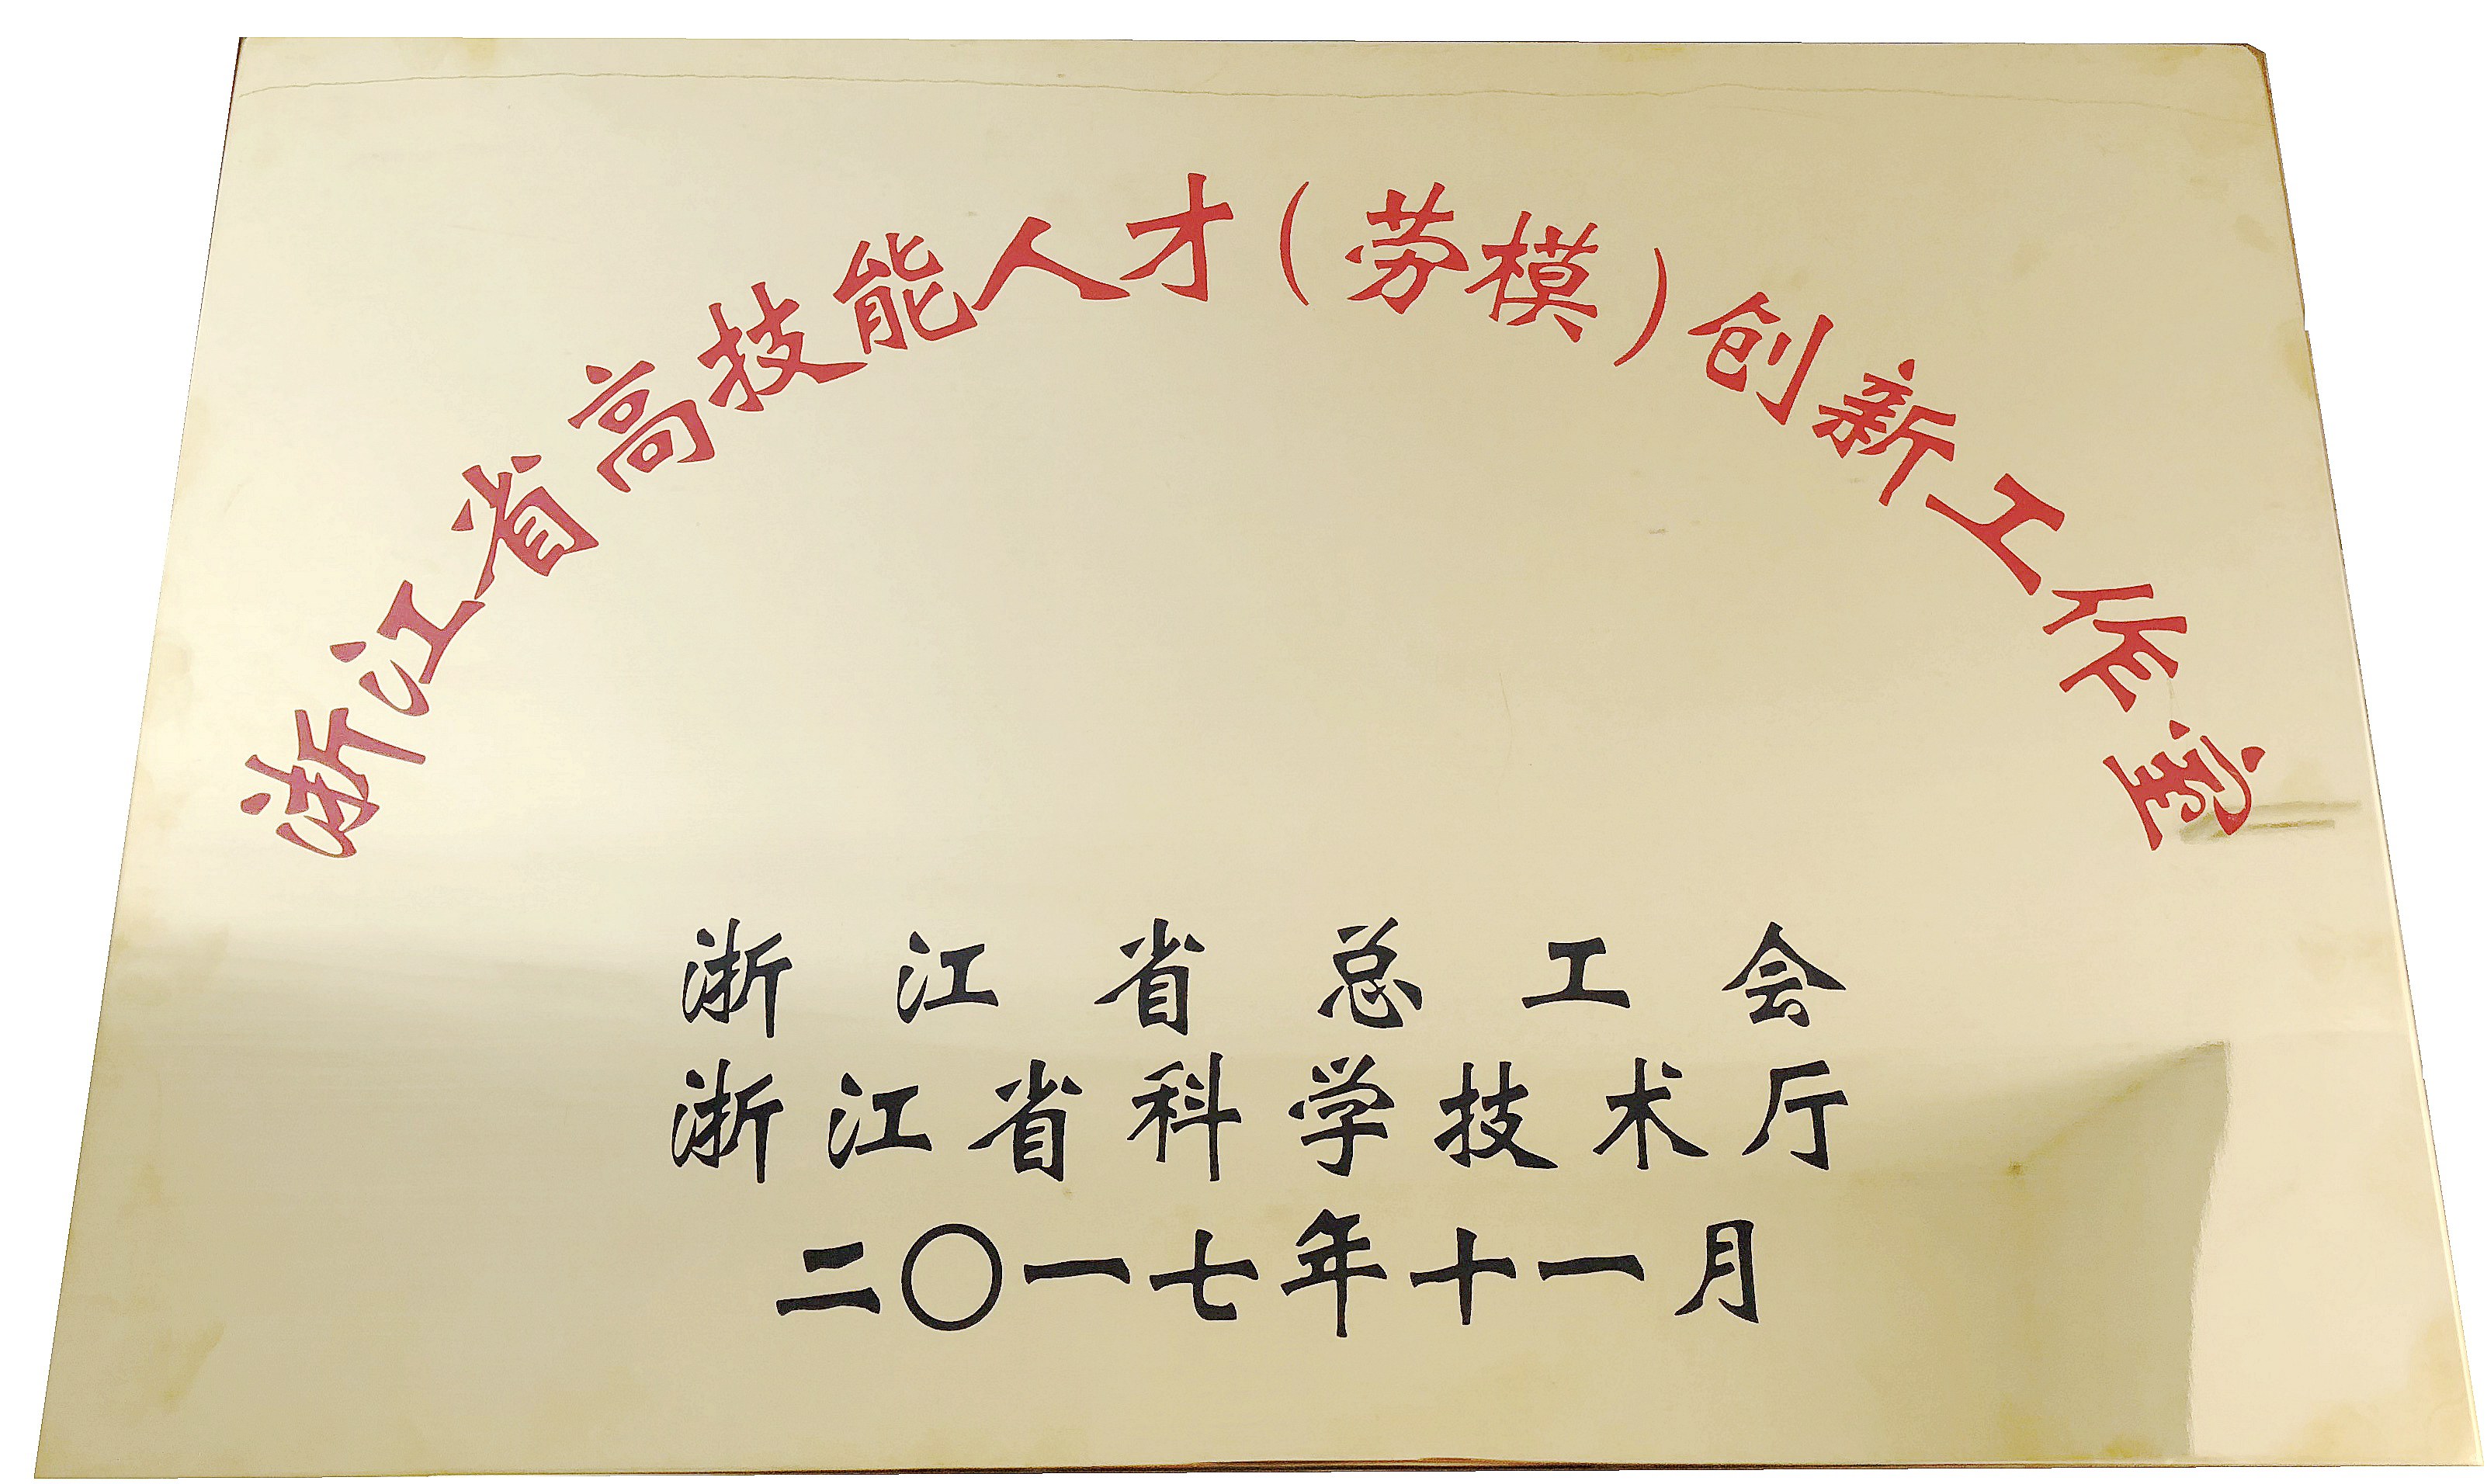 浙江省高技能人才(劳模)创新工作室
浙江省总工会
浙江省科学技术厅
二〇一七年十一月